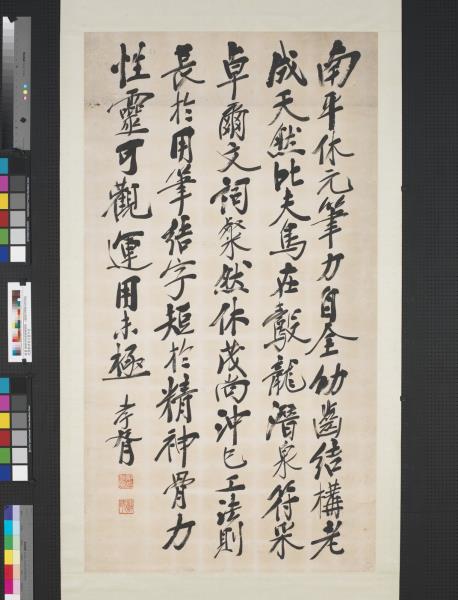 南平休元筆力自全幼齒結構老
成天然比夫馬在轂龍潛泉符采
卓爾文詞粲然休茂尚沖已工法則
長於用筆結字短於精神骨力
性靈可觀運用未極
孝胥